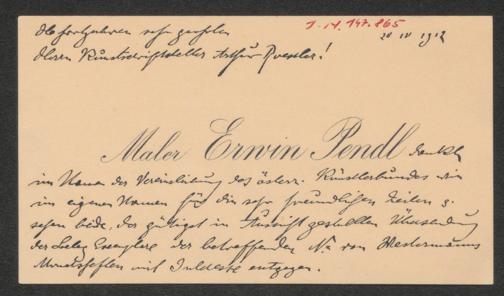 I.N. 147.865
20 IV 1912
sehr geehrten
Herrn Kunstschriftsteller Arthur Roessler!
Maler Erwin Pendl dankt
im Namen der Vereinsleitung des österr. Künstlerbundes wie
im eigenen Namen für die sehr freundlichen Zeilen u.
sehen beide, der gütigst in Aussicht gestellten Übersendung
der Beleg Exemplare der betreffenden Nr. von Westermanns
Monatsheften mit Interesse entgegen.